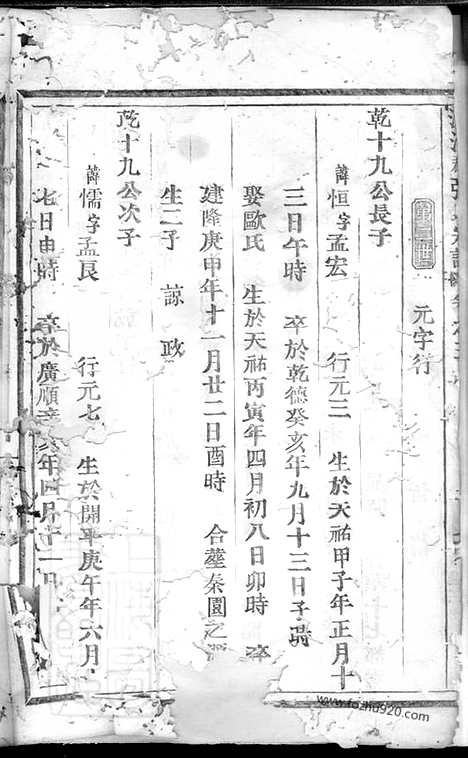 元字行
乾十九公長子
諱恒字孟宏 行元三 生於天祐甲子年正月十
三日午時 卒於乾德癸亥年九月十三日子時
娶歐氏 生於天祐丙寅年四月初八日卯時 卒
建隆庚申年十一月廿二日酉時 合塟秦園之
生二子 諒 政
乾十九公次子
諱懦字孟良 行元七 生於開平庚午年六月
七日申時 卒於廣順辛亥年四月十二日
www.fozhu920.com